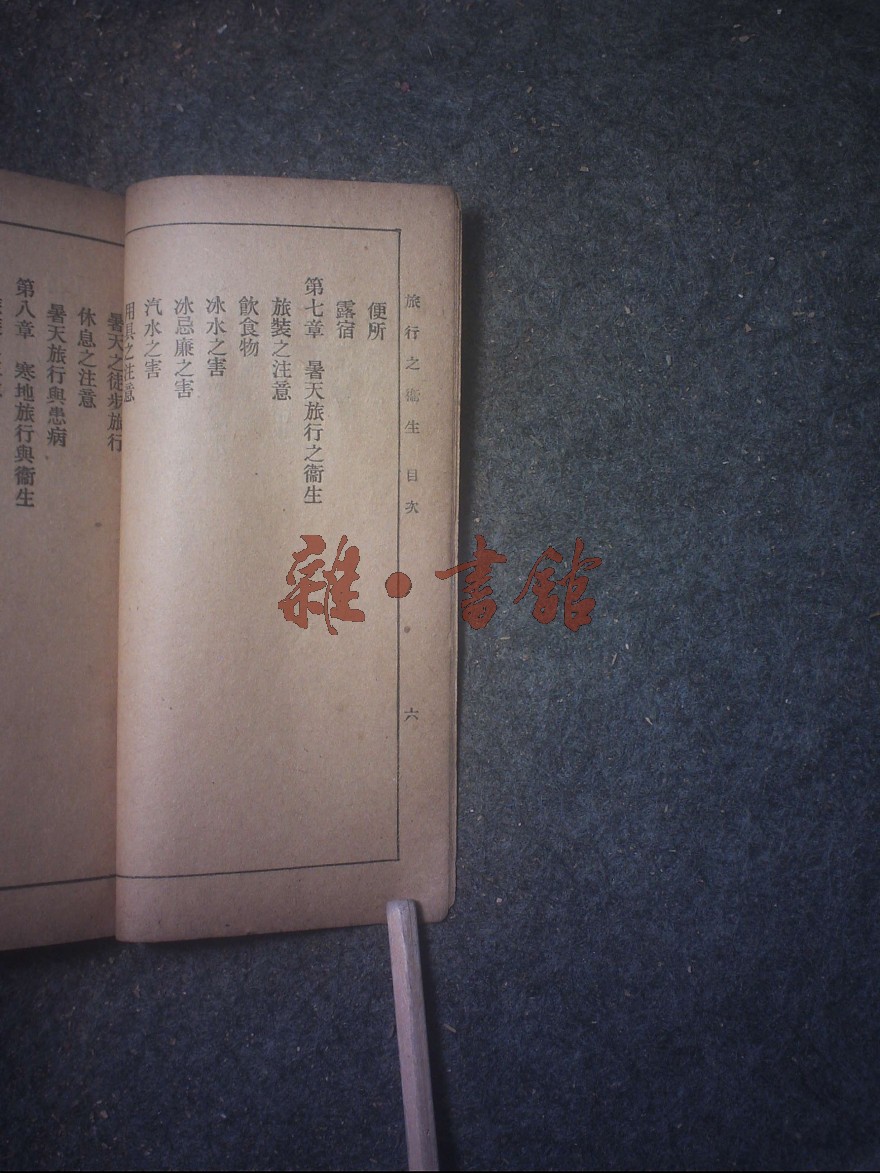 旅行之衞生 目次
六
便所
露宿
第七章 暑天旅行之衞生
旅裝之注意
飲食物
冰水之害
冰忌廉之害
汽水之害
用具之注意
暑天之徒步旅行
休息之注意
暑天旅行與患病
第八章 寒地旅行與衞生
雜·書館